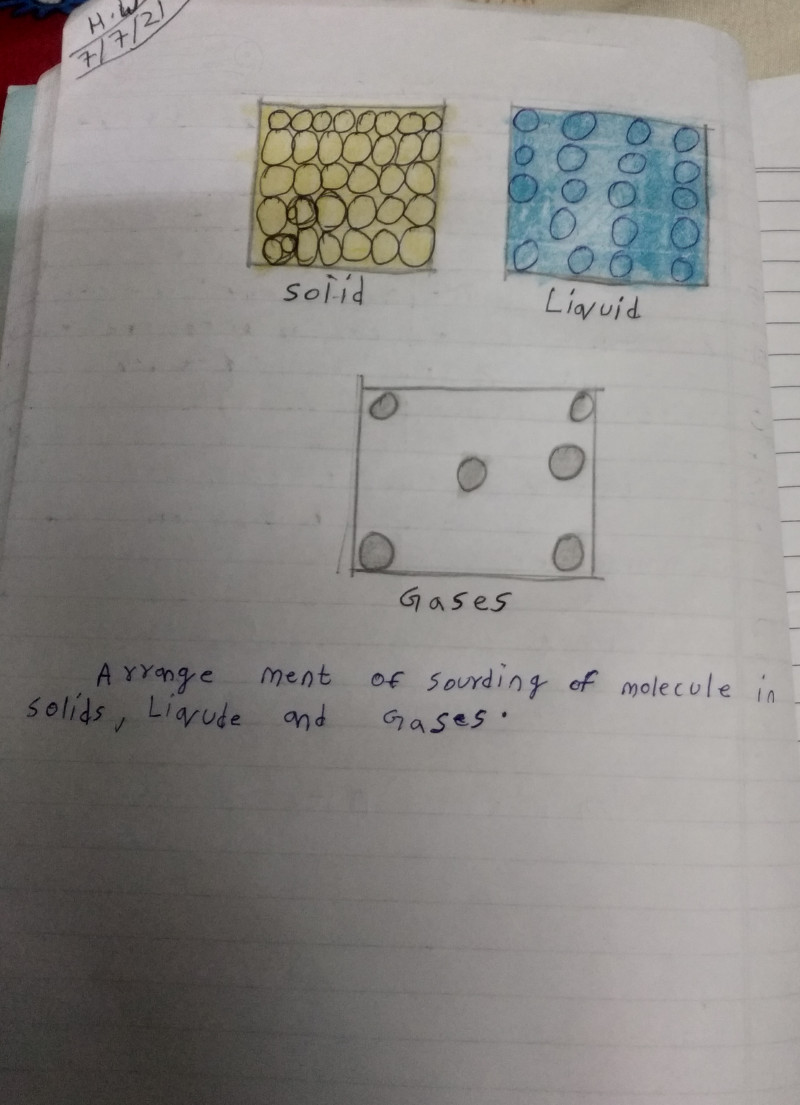 H.W
7/7/21
solid
Liquid
Gases
Arrange ment of sourding of molecule in
solids, Liqude and Gases.